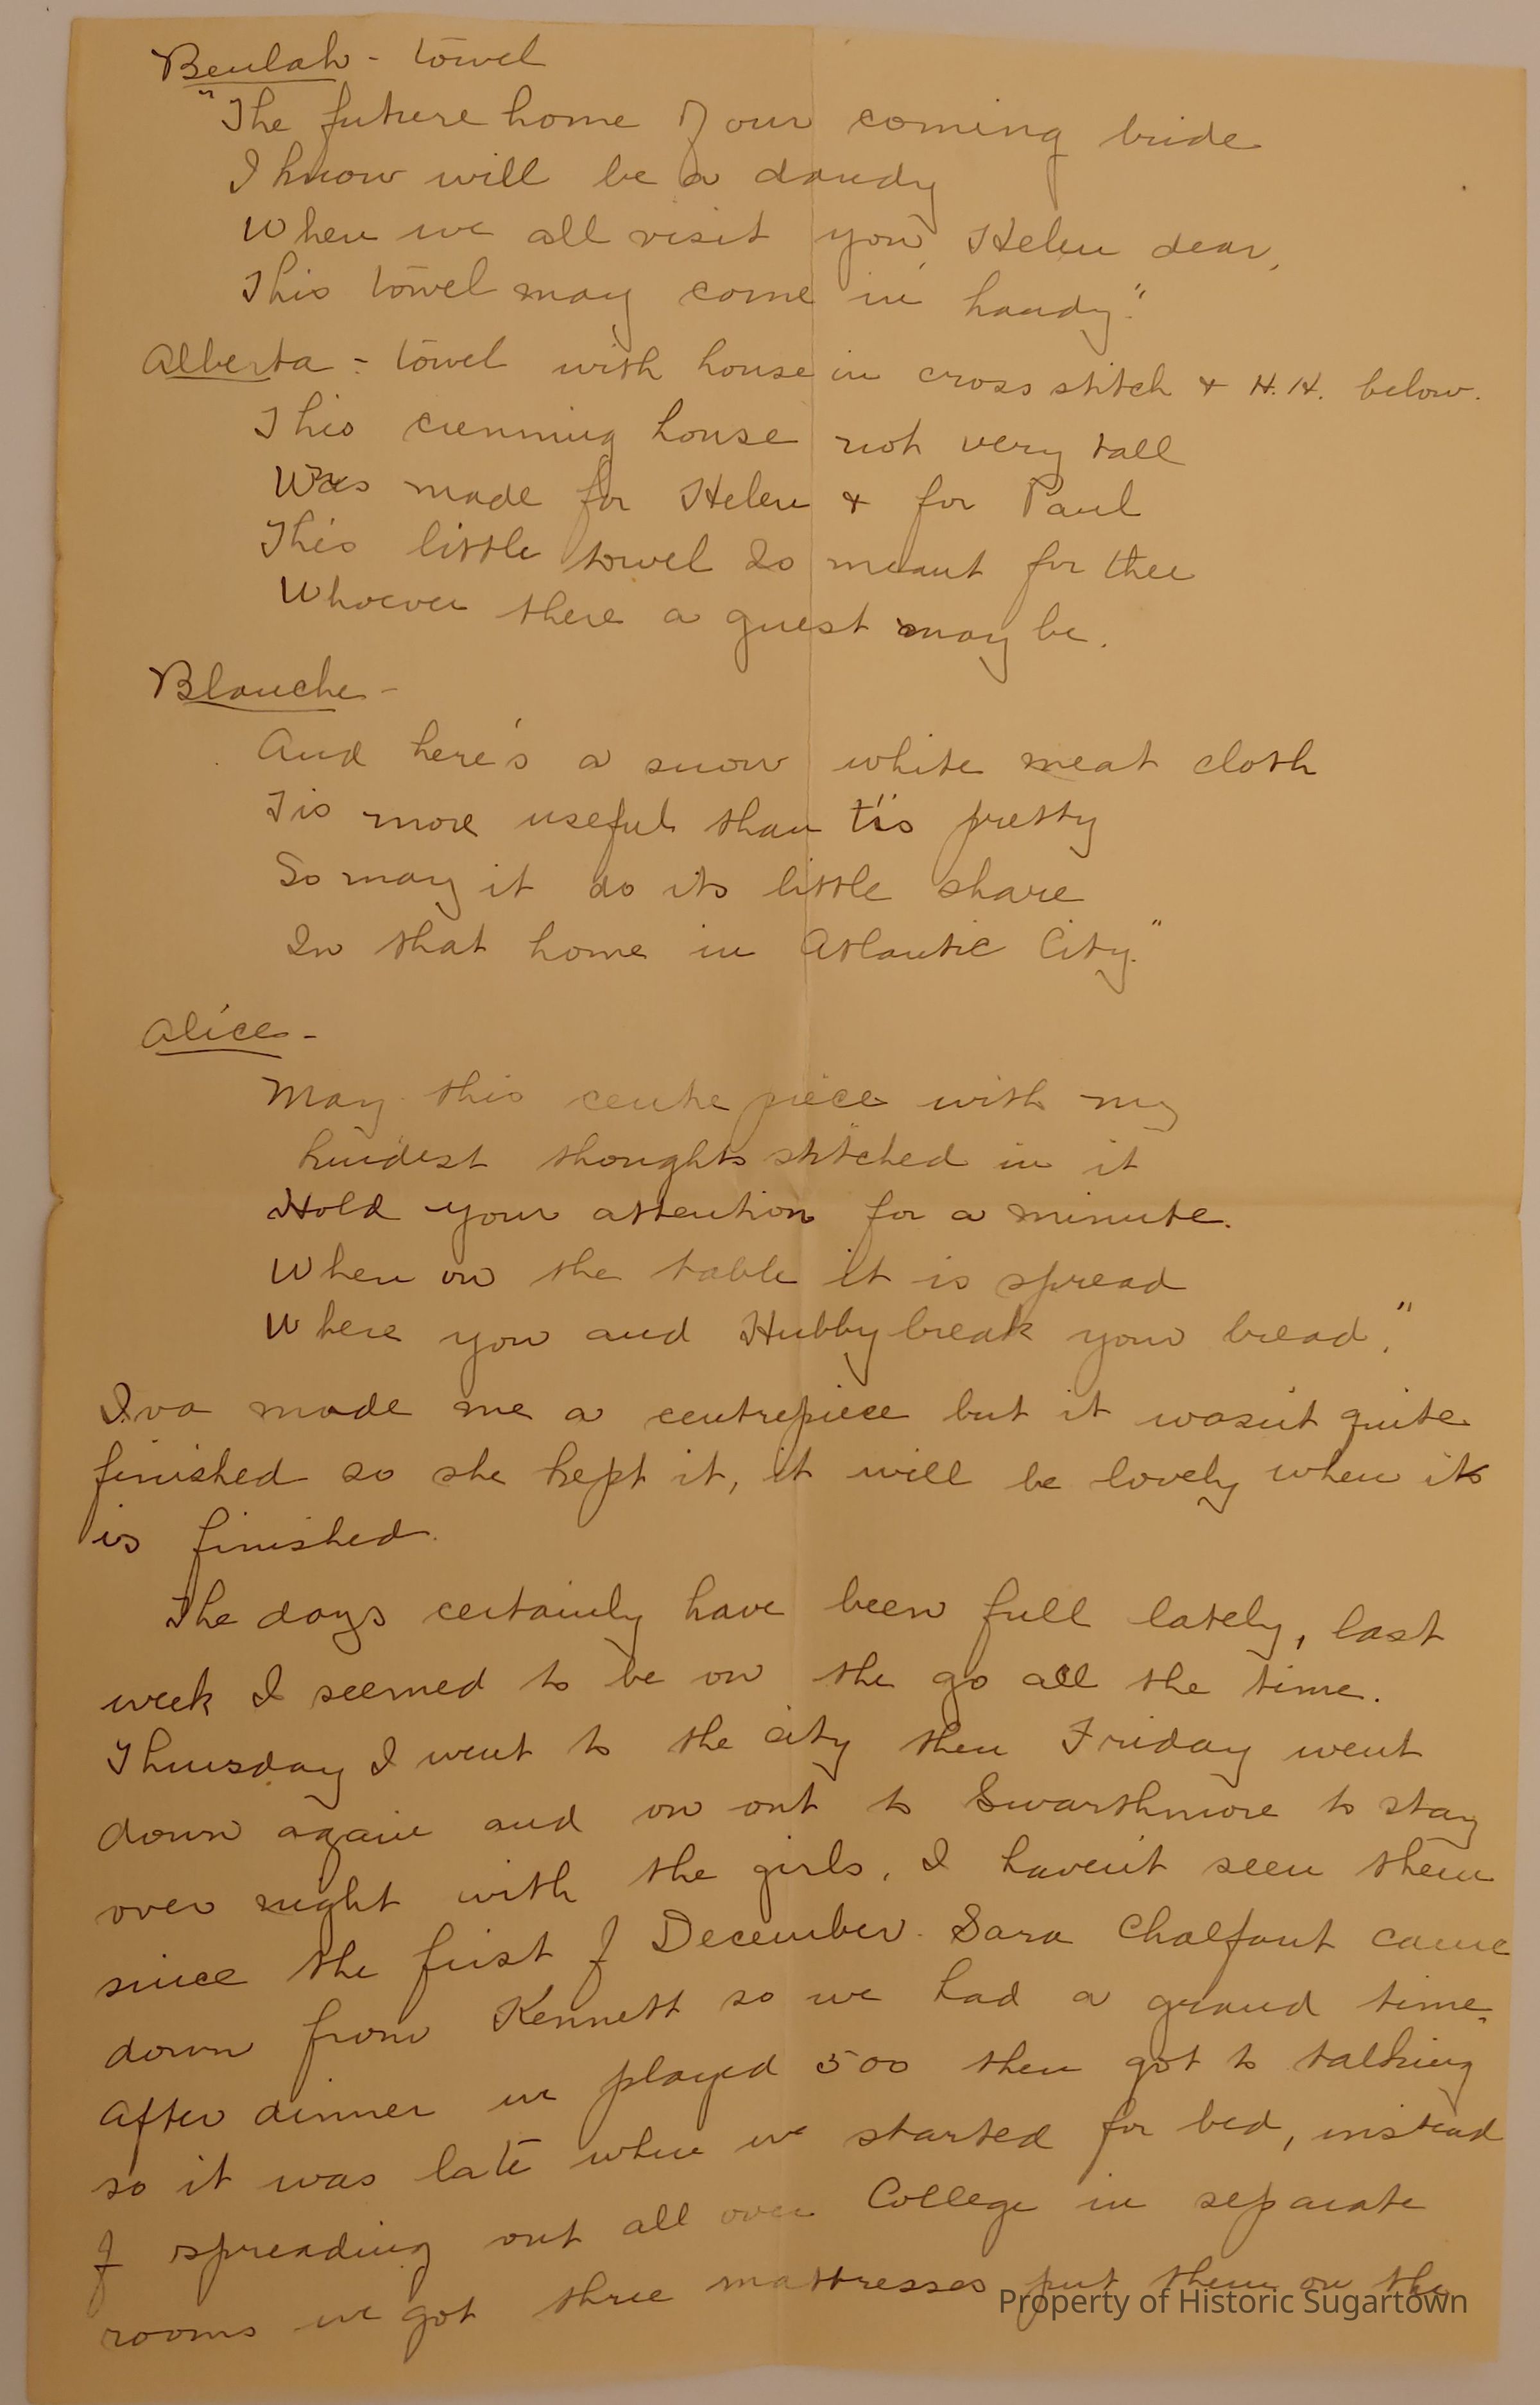 Beulah - towel
"The future home of our coming bride
I know will be a dandy
When we all visit you, Helen dear,
This towel may come in handy."
Alberta - towel with house in cross stitch & H.H. below.
This cunning house not very tall
Was made for Helen & for Paul
This little towel Is meant for thee
Whoever there a guest may be.
Blanche -
And here's a snow white meat cloth
Tis more useful than t'is pretty
So may it do its little share
In that home in Atlantic City."
Alice -
May this centre piece with my
kindest thoughts stitched in it
Hold your attention for a minute.
When on the table it is spread
Where you and Hubby break your bread."
Iva made me a centrepiece but it wasn't quite
finished so she kept it, it will be lovely when its
is finished.
The days certainly have been full lately, last
week I seemed to be on the go all the time.
Thursday I went to the city then Friday went
down again and on out to Swarthmore to stay
over night with the girls, I haven't seen them
since the first of December. Sara Chalfant came
down from Kennett so we had a grand time.
After dinner we played 500 then got to talking
so it was late when we started for bed, instead
of spreading out all over College in separate
rooms we got three mattresses put them on the
Property of Historic Sugartown